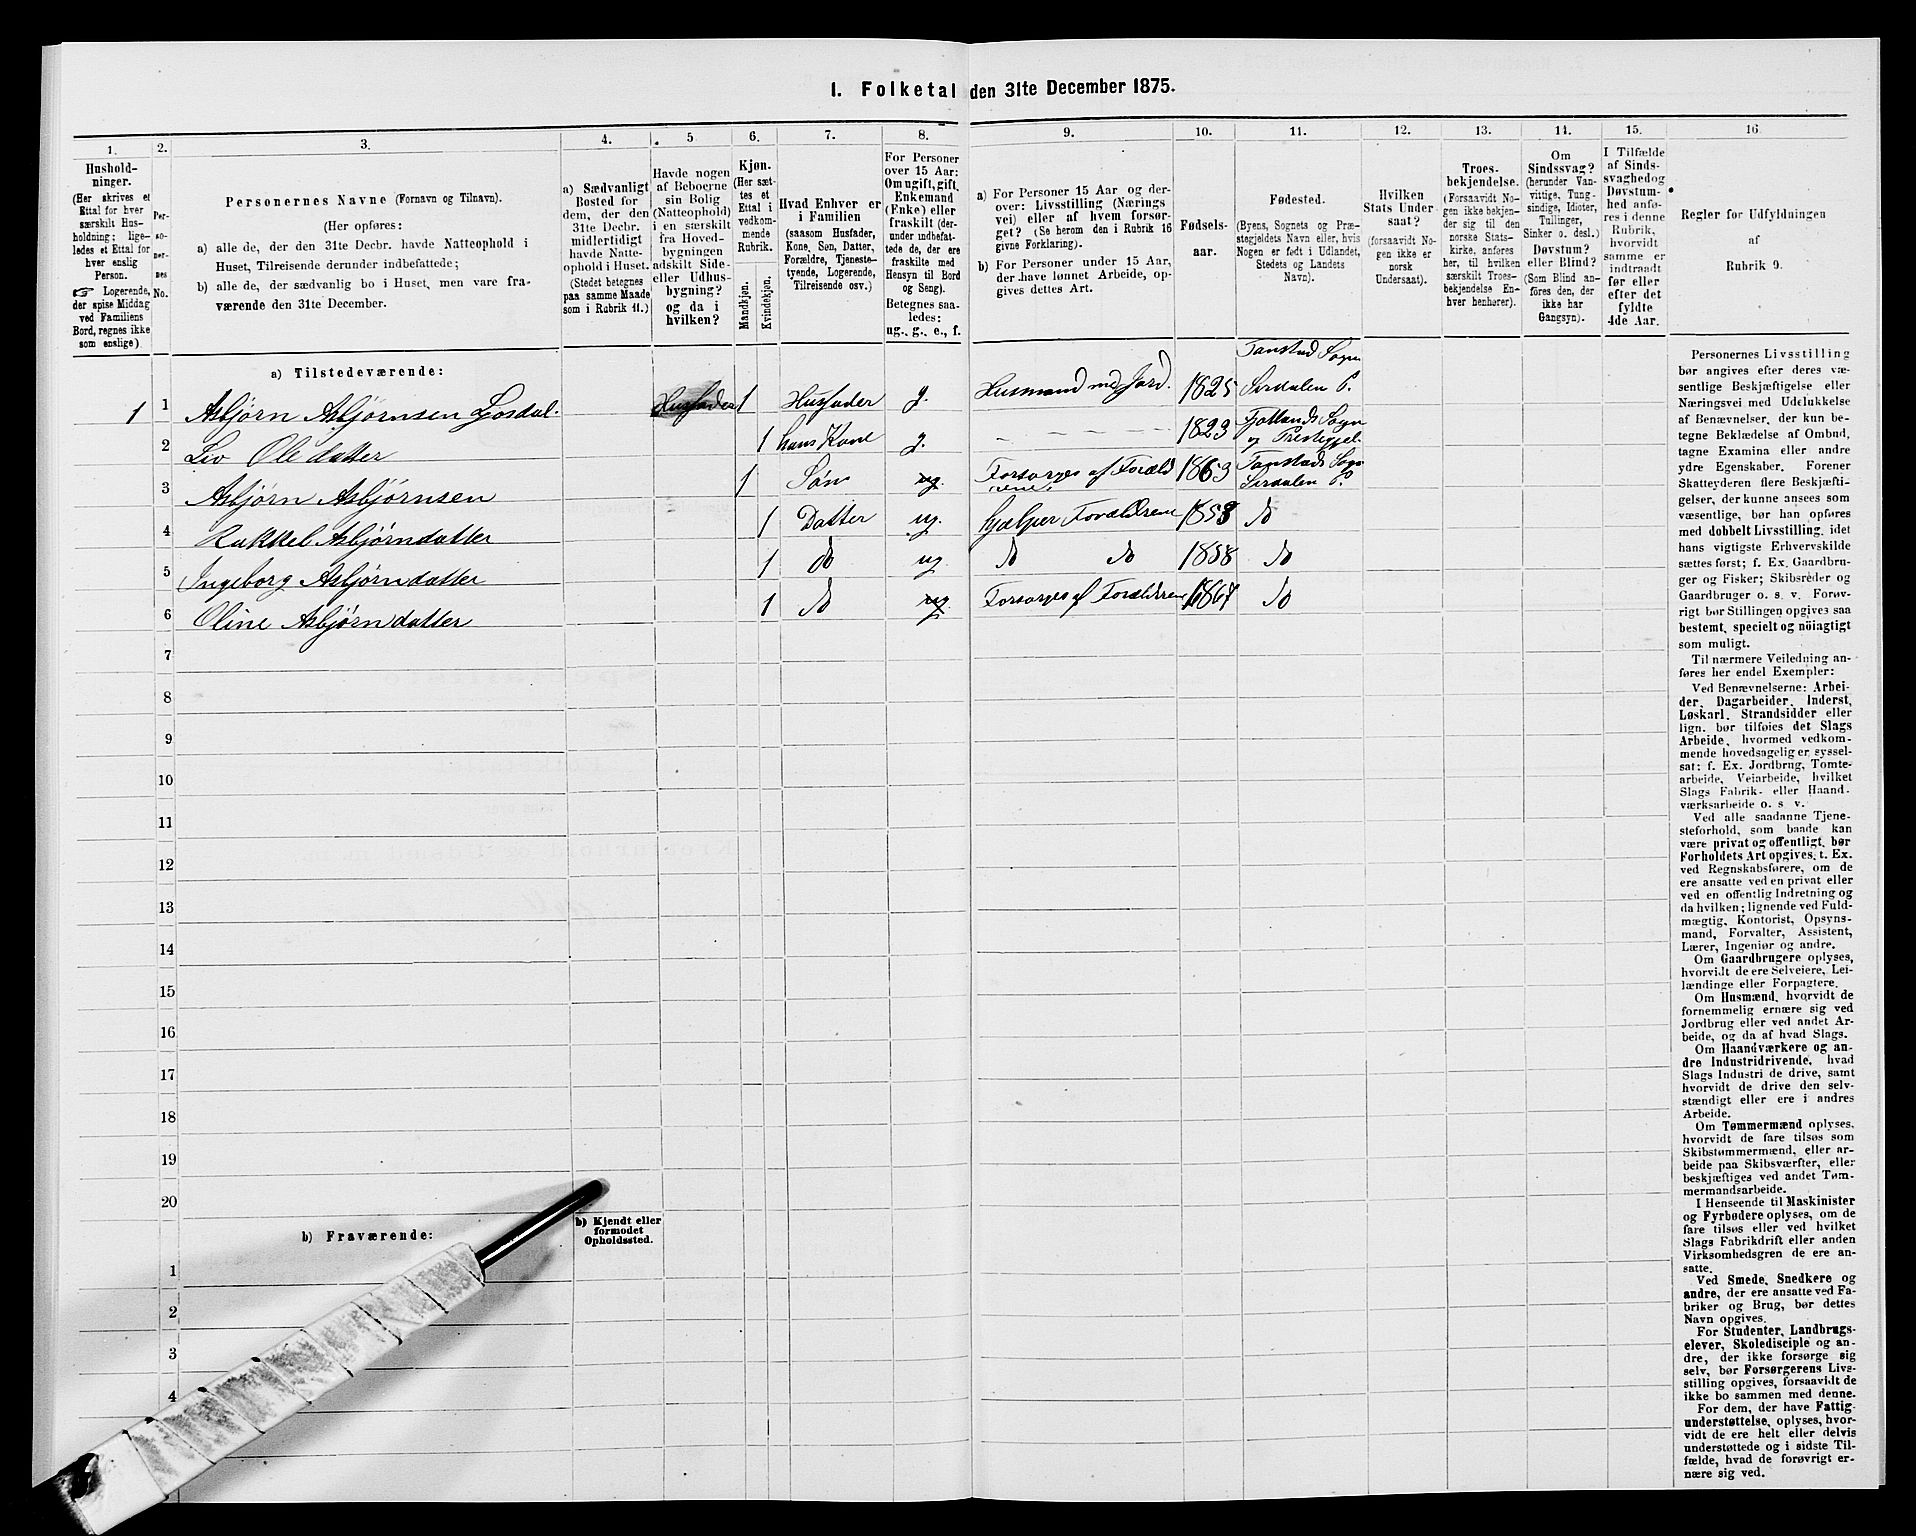 I. Folketal den 31te December 1875.
1. 2. 3. 4. 5 6. 7. 8. 9. 10. 11. 12. 13. 14. 15. 16
Hushold-
ninger.
(Her skrives et
Ettal for hver
særskilt Hus-
holdning; lige-
ledes et Ettal for
hver enslig
Person.
☞ Logerende,
der spise Middag
ved Familiens
Bord, regnes ikke
som enslige).
Per-
so-
ner-
nes
No.
Personernes Navne (Fornavn og Tilnavn).
(Her opføres:
a) alle de, der den 31te Decbr. havde Natteophold i
Huset, Tilreisende derunder indbefattede;
b) alle de, der sædvanlig bo i Huset, men vare fra-
værende den 31te December.
a) Sædvanligt
Bosted for
dem, der den
31te Decbr.
midlertidigt
havde Natte-
ophold i Huset.
(Stedet betegnes
paa samme Maade
som i Rubrik 11.)
Havde nogen
af Beboerne
sin Bolig
(Natteophold)
i en særskilt
fra Hoved-
bygningen
adskilt Side-
eller Udhus-
bygning?
og da i
hvilken?
Kjøn.
(Her sæt-
tes et
Ettal i
vedkom-
mende
Rubrik.
Mandkjøn.
Kvindekjøn.
Hvad Enhver er
i Familien
(saasom Husfader,
Kone, Søn, Datter,
Forældre, Tjeneste-
tyende, Logerende,
Tilreisende osv.)
For Personer
over 15 Aar:
Om ugift, gift,
Enkemand
(Enke) eller
fraskilt (der-
under indbefat-
tede de, der ere
fraskilte med
Hensyn til Bord
og Seng).
Betegnes saa-
ledes:
ug., g., e., f.
a) For Personer 15 Aar og der-
over: Livsstilling (Nærings
vei) eller af hvem forsør-
get? (Se herom den i Rubrik 16
givne Forklaring).
b) For Personer under 15 Aar,
der have lønnet Arbeide, op-
gives dettes Art.
Fødsels-
aar.
Fødested.
(Byens, Sognets og Præ-
stegjeldets Navn eller, hvis
Nogen er født i Udlandet,
Stedets og Landets
Navn).
Hvilken
Stats Under
saat?
(forsaavidt No-
gen ikke er
norsk
Undersaat).
Troes-
bekjendelse.
(Forsaavidt No-
gen ikke bekjen-
der sig til den
norske Stats-
kirke, anføres
her, til hvilken
særskilt Troes-
bekjendelse En-
hver henhører).
Om
Sindssvag?
(herunder Van-
vittige, Tung-
sindige, Idioter,
Tullinger,
Sinker o. desl.)
Døvstum?
eller Blind?
(Som Blind an-
føres den, der
ikke har
Gangsyn).
I Tilfælde
af Sinds-
svaghed og
Døvstum-
hed anfø-
res i denne
Rubrik,
hvorvidt
samme er
indtraadt
før eller
efter det
fyldte
4de Aar.
Regler for Udfyldningen
af
Rubrik 9.
a) Tilstedeværende:
Tanstad Sogn
1 1 Asbjørn Asbjørnsen Josdal. Husfader 1 Husfader g. Husmand med Jord. 1825 Sirdalen P.
2 Liv Oledatter 1 hans Kone g. — — — — 1823 Fjotlands Sogn
og Præstegjel.
3 Asbjørn Asbjørnsen 1 Søn ug. Forsørges af Foræld 1863 Tanstad Sogn
rene. Sirdalen P.
4 Rakkel Asbjørndatter 1 Datter ug. hjælper Forældrene 1853 do
5 Ingeborg Asbjørndatter 1 do ug. do do 1858 do
6 Oline Asbjørndatter 1 do ug. Forsørges af Forældrene 1867 do
7
8
9
10
11
12
13
14
15
16
17
18
19
20
b) Fraværende:
b) Kjendt eller
formodet
Opholdssted.
1
2
3
4
Personernes Livsstilling
bør angives efter deres væ-
sentlige Beskjæftigelse eller
Næringsvei med Udelukkelse
af Benævnelser, der kun be-
tegne Beklædelse af Ombud,
tagne Examina eller andre
ydre Egenskaber. Forener
Skatteyderen flere Beskjæfti-
gelser, der kunne ansees som
væsentlige, bør han opføres
med dobbelt Livsstilling, idet
hans vigtigste Erhvervskilde
sættes først; f. Ex. Gaardbru-
ger og Fisker; Skibsrèder og
Gaardbruger o. s. v. Forøv-
rigt bør Stillingen opgives saa
bestemt, specielt og nöiagtigt
som muligt.
Til nærmere Veiledning an-
føres her endel Exempler:
Ved Benævnelserne: Arbei-
der, Dagarbeider, Inderst,
Løskarl, Strandsidder eller
lign. bør tilføies det Slags
Arbeide, hvormed vedkom-
mende hovedsagelig er syssel-
sat; f. Ex. Jordbrug, Tomte-
arbeide, Veiarbeide, hvilket
Slags Fabrik- eller Haand-
værksarbeide o. s v.
Ved alle saadanne Tjene-
steforhold, som baade kan
være privat og offentligt, bør
Forholdets Art opgives, t. Ex.
ved Regnskabsførere, om de
ere ansatte ved en privat eller
ved en offentlig Indretning og
da hvilken; lignende ved Fuld-
mægtig, Kontorist, Opsyns-
mand, Forvalter, Assistent,
Lærer, Ingeniør og andre.
Om Gaardbrugere oplyses,
hvorvidt de ere Selveiere, Lei-
lændinge eller Forpagtere.
Om Husmænd, hvorvidt de
fornemmelig ernære sig ved
Jordbrug eller ved andet Ar-
beide, og da af hvad Slags.
Om Haandværkere og an-
dre Industridrivende, hvad
Slags Industri de drive, samt
hvorvidt de drive den selv-
stændigt eller ere i andres
Arbeide.
Om Tømmermænd oplyses,
hvorvidt de fare tilsøs som
Skibstømmermænd, eller ar-
beide paa Skibsværfter, eller
beskjæftiges ved andet Tøm-
mermandsarbeide.
I Henseende til Maskinister
og Fyrbødere oplyses, om de
fare tilsøs eller ved hvilket
Slags Fabrikdrift eller anden
Virksomhedsgren de ere an-
satte.
Ved Smede, Snedkere og
andre, der ere ansatte ved Fa-
briker og Brug, bør dettes
Navn opgives.
For Studenter, Landbrugs-
elever, Skoledisciple og an-
dre, der ikke forsørge sig
selv, bør Forsørgerens Livs-
stilling opgives, forsaavidt de
ikke bo sammen med denne.
For dem, der have Fattig-
understøttelse, oplyses, hvor-
vidt de ere helt eller delvis
understøttede og i sidste Til-
fælde, hvad de forøvrigt er-
nære sig ved.